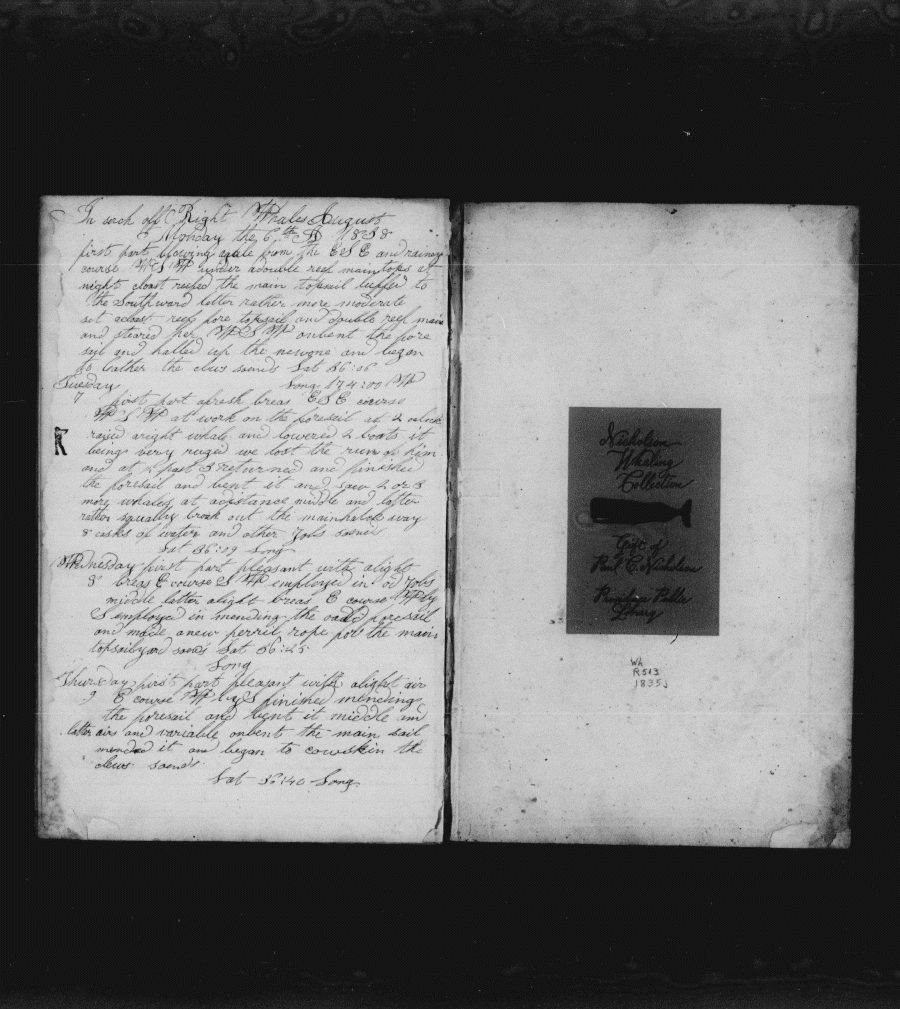 In serch off Right Whales August
Monday the 6th A 1838
first part blowing agale from the ESE and rainey
course WSW under adouble reef maintops at
night cloast reefed the main topsail luffed to
the Southward latter rather more moderate
set acloast reef fore topsail and double reef main
and steared her WSW onbent the fore
sail and halled up the newone and began
to leather the clus soends Lat 36:06
Tuesday Long 174:00 W
7 first part afresh breas ESE course
WSW at work on the foresail at 2 oclock
raised aright whale and lowered 2 boats it
being very ruged we lost the run of him
and at ½ past 3 returned and finished
the foresail and bent it and saw 2 or 3
more whales at adistance middle and latter
rather squally broak out the mainhatch way
8 casks of water and other Jobs soends
Lat 36:09 Long
Wednesday first part pleasant with alight
8 breas E course SW employed in od Jobs
middle latter alight breas E course W by
S employed in mending the oald foresail
and made anew perril rope for the main
topsailyard soends Lat 36:25
Long
Thursday first part pleasant with alight air
9 E course W by S finished mending
the foresail and bent it middle and
latter airs and variable onbent the main sail
mended it and began to cowskin the
clews soends
Lat 36:40 Long
Nicholson
Whaling
Collection
Gift of
Paul C. Nicholson
Providence Public
Library
Wh
R513
1835j